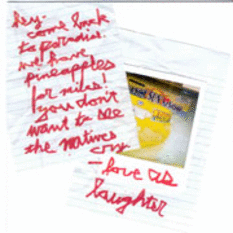 hey-
come back
to paradise.
we have
pineapples
for miles!
you don't
want to see
the natives
cry
- love as
laughter